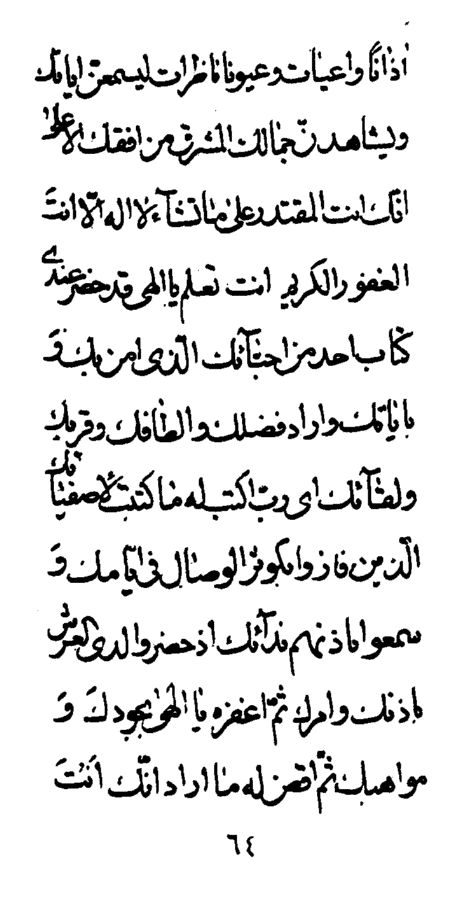 اذانًا واعیات وعیونا ناظرات لیسمعنّ ایاتك
ویشاهدنّ جمالك المشرق من افقك الاعلی
انّك انت المقتدر علی ما تشآء لا اله الّا انتَ
الغفور الكریم انت تعلم یا الهی قد حضر عندی
كتاب احد من احبّآئك الّذی امن بك وَ
بایاتك واراد فضلك والطافك وقربك
ولقآئك ای ربّ اكتب له ما كتبت لاصفیآئك
الّذین فازوا بكوثر الوصال فی ایّامك وَ
سمعوا باذنهم ندآئك اذ حضروا لدی العرش
باذنك وامرك ثمّ اغفره یا الهی بجودكَ وَ
مواهبك ثمّ اقض له ما اراد انّك اَنْتَ
٦٤